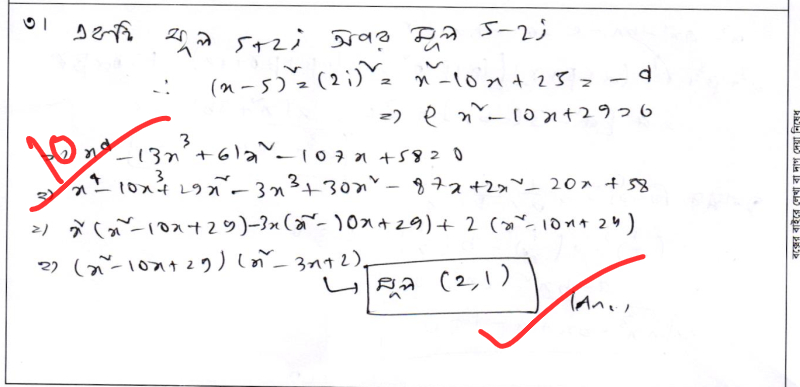 ৩। একটি মূল 5+2i অপর মূল 5-2i
∴ (x-5)² = (2i)² = x²-10x+25 = -4
⇒ x²-10x+29=0
10
⇒ x⁴-13x³+61x²-107x+58=0
⇒ x⁴-10x³+29x²-3x³+30x²-87x+2x²-20x+58
⇒ x²(x²-10x+29)-3x(x²-10x+29)+2(x²-10x+29)
⇒ (x²-10x+29)(x²-3x+2)
↳ মূল (2,1)
(Ans.)
বক্সের বাইরে লেখা বা দাগ দেয়া নিষেধ